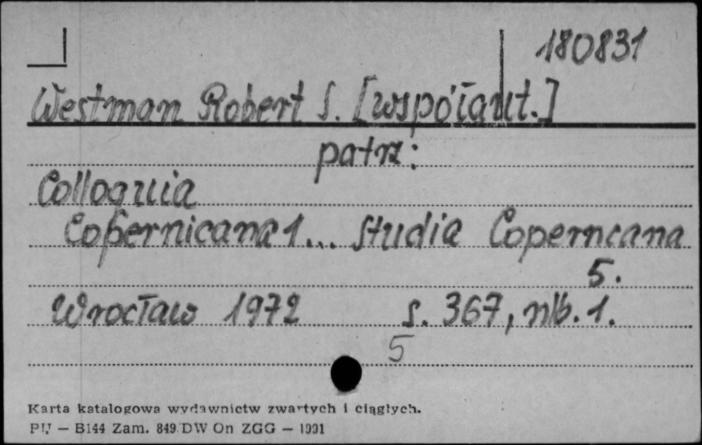 180831
Westman Robert S. [współaut.]
patrz:
Colloquia
Copernicana 1... Studia Coperncana
5.
Wrocław 1972 s. 367, nlb. 1.
5
Karta katalogowa wydawnictw zwartych i ciągłych.
PU — B144 Zam. 849 DW On ZGG — 1991